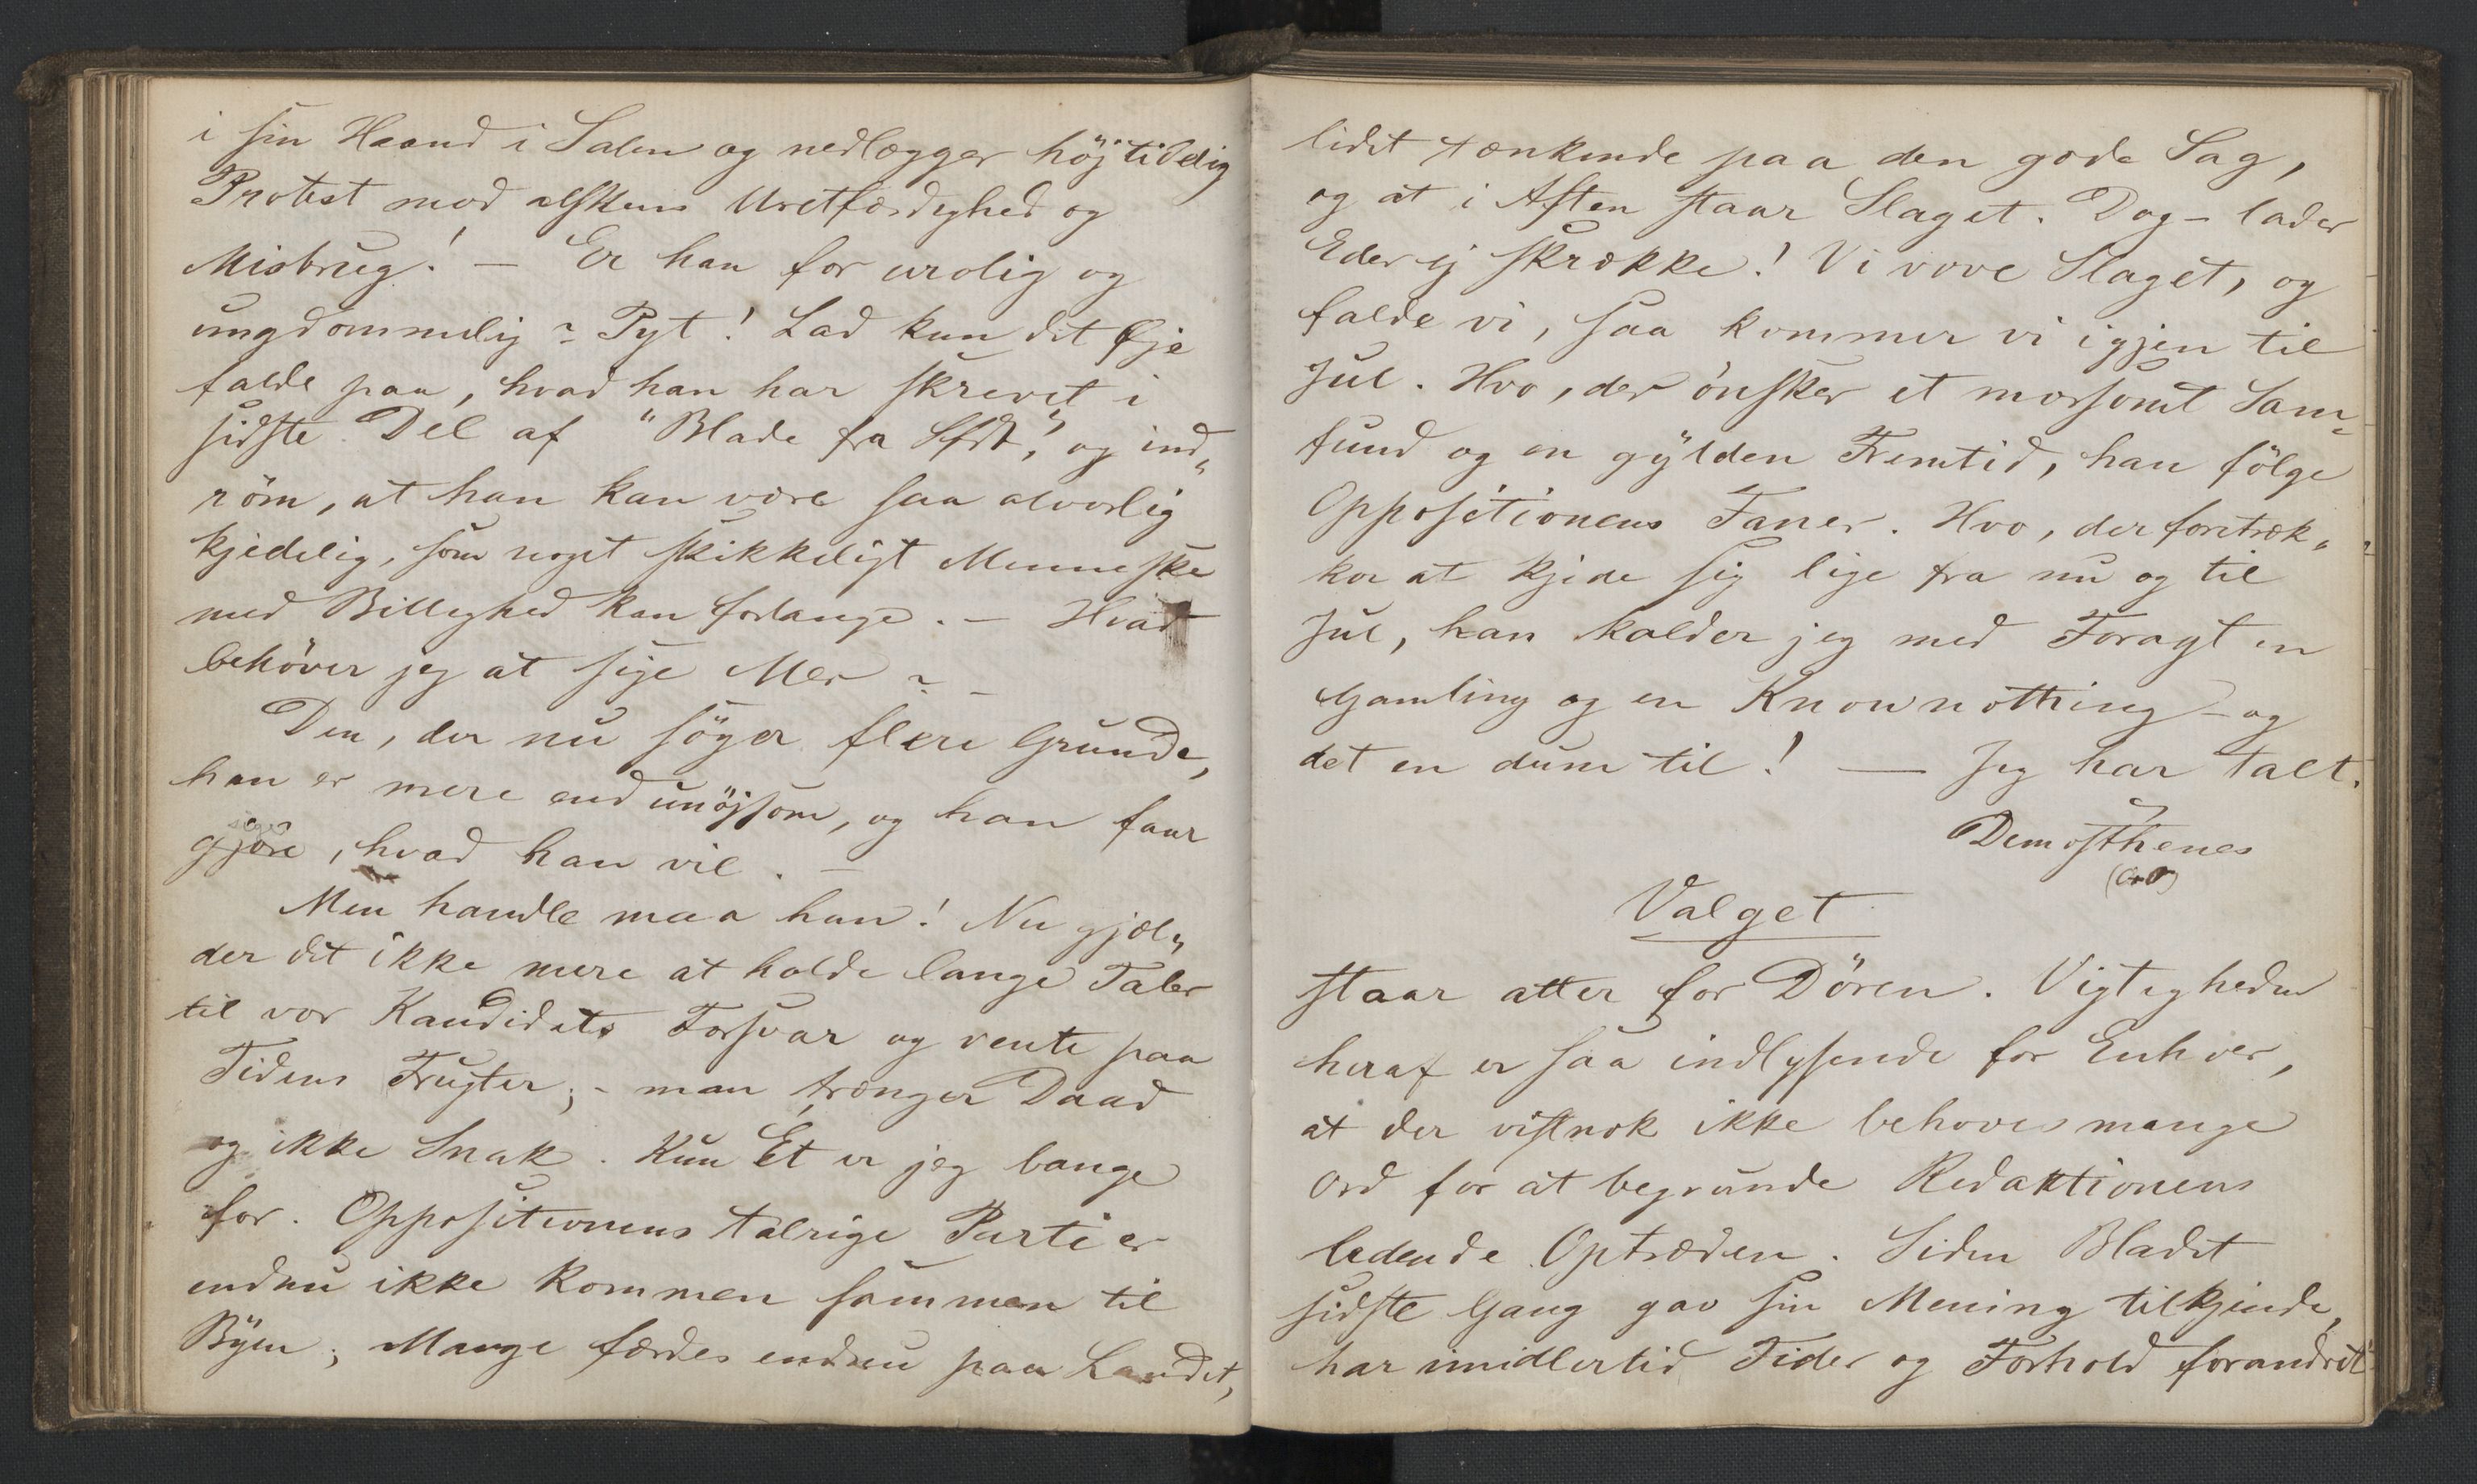 i sin Haand i Salen og nedlægger höjtidelig
Protest mod alskens Uretfærdighed og
Misbrug! — Er han for urolig og
ungdommelig? Pyt! Lad kun dit Øje
falde paa, hvad han har skrevet i
sidste Del af "Blade fra Sfdt", og ind„
röm, at han kan være saa alvorlig
kjedelig, som noget skikkeligt Menneske
med Billighed kan forlange. — Hvad
behöver jeg at sige Mer? —
Den, der nu söger flere Grunde,
han er mere end unöjsom, og han faar
gjöre, hvad han vil. —
Men handle maa han! Nu gjæl„
der det ikke mere at holde lange Taler
til vor Kandidats Forsvar og vente paa
Tidens Frugter; – man trænger Daad
og ikke Snak. Kun Et er jeg bange
for. Oppositionens talrige Parti er
endnu ikke kommen sammen til
Byen; Mange færdes endnu paa Landet,
lidet tænkende paa den gode Sag,
og at i Aften staar Slaget. Dog – lader
Eder ej skrække! Vi vove Slaget, og
falde vi, saa kommer vi igjen til
Jul. Hvo, der ønsker et morsomt Sam„
fund og en gylden Fremtid, han fölge
Oppositionens Faner. Hvo, der foretræk„
ker at kjede sig lige fra nu og til
Jul, han kalder jeg med Foragt en
Gamling og en Knownotthing – og
det en dum til! — Jeg har talt.
Demosthenes
Valget
staar atter for Dören. Vigtigheden
heraf er saa indlysende for Enhver,
at der vistnok ikke behoves mange
Ord for at begrunde Redaktionens
ledende Optræden. Siden Bladet
sidste Gang gav sin Mening tilkjende,
har imidlertid Tider og Forhold forandret